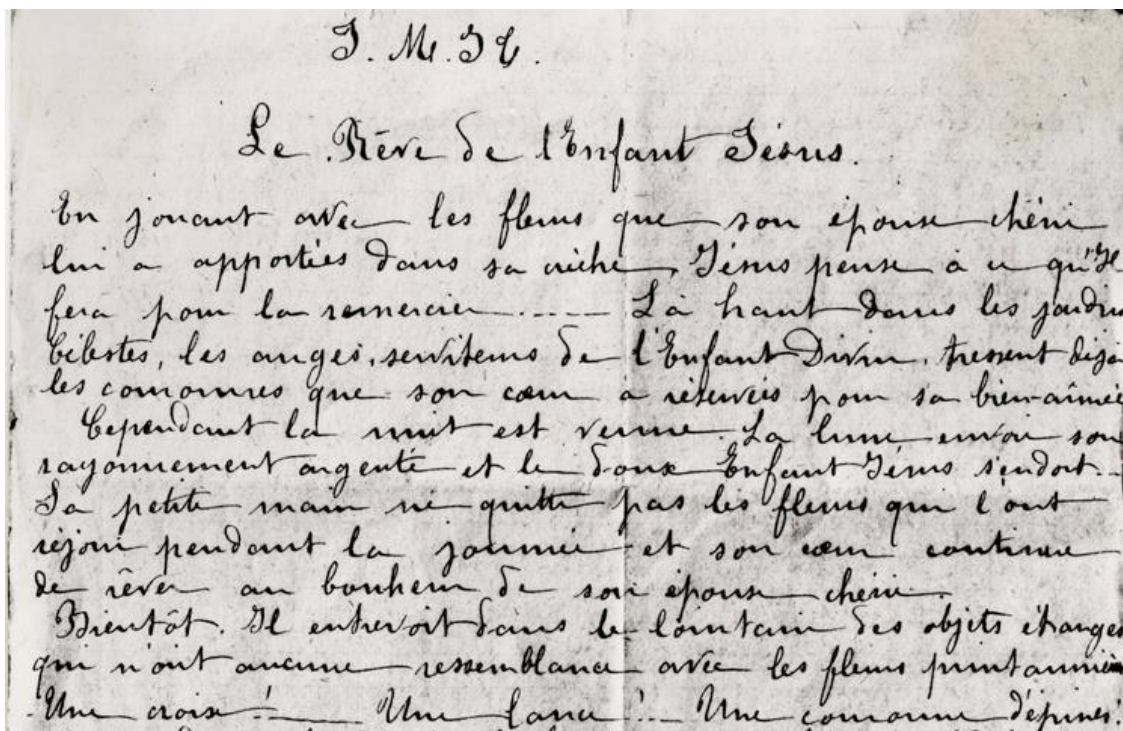 J. M. J T.
Le Rêve de l'Enfant Jésus.
En jouant avec les fleurs que son épouse chérie
lui a apportées dans sa crèche, Jésus pense à ce qu'Il
fera pour la remercier..... Là haut dans les jardins
Célestes, les anges, serviteurs de l'Enfant Divin, tressent déjà
les couronnes que son cœur a réservées pour sa bien-aimée
Cependant la nuit est venue. La lune envoie son
rayonnement argenté et le doux Enfant Jésus s'endort...
Sa petite main ne quitte pas les fleurs qui l'ont
réjoui pendant la journée et son cœur continue
de rêver au bonheur de son épouse chérie.
Bientôt, Il entrevoit dans le lointain des objets étranges
qui n'ont aucune ressemblance avec les fleurs printanières
Une croix!... Une lance!... Une couronne d'épines!